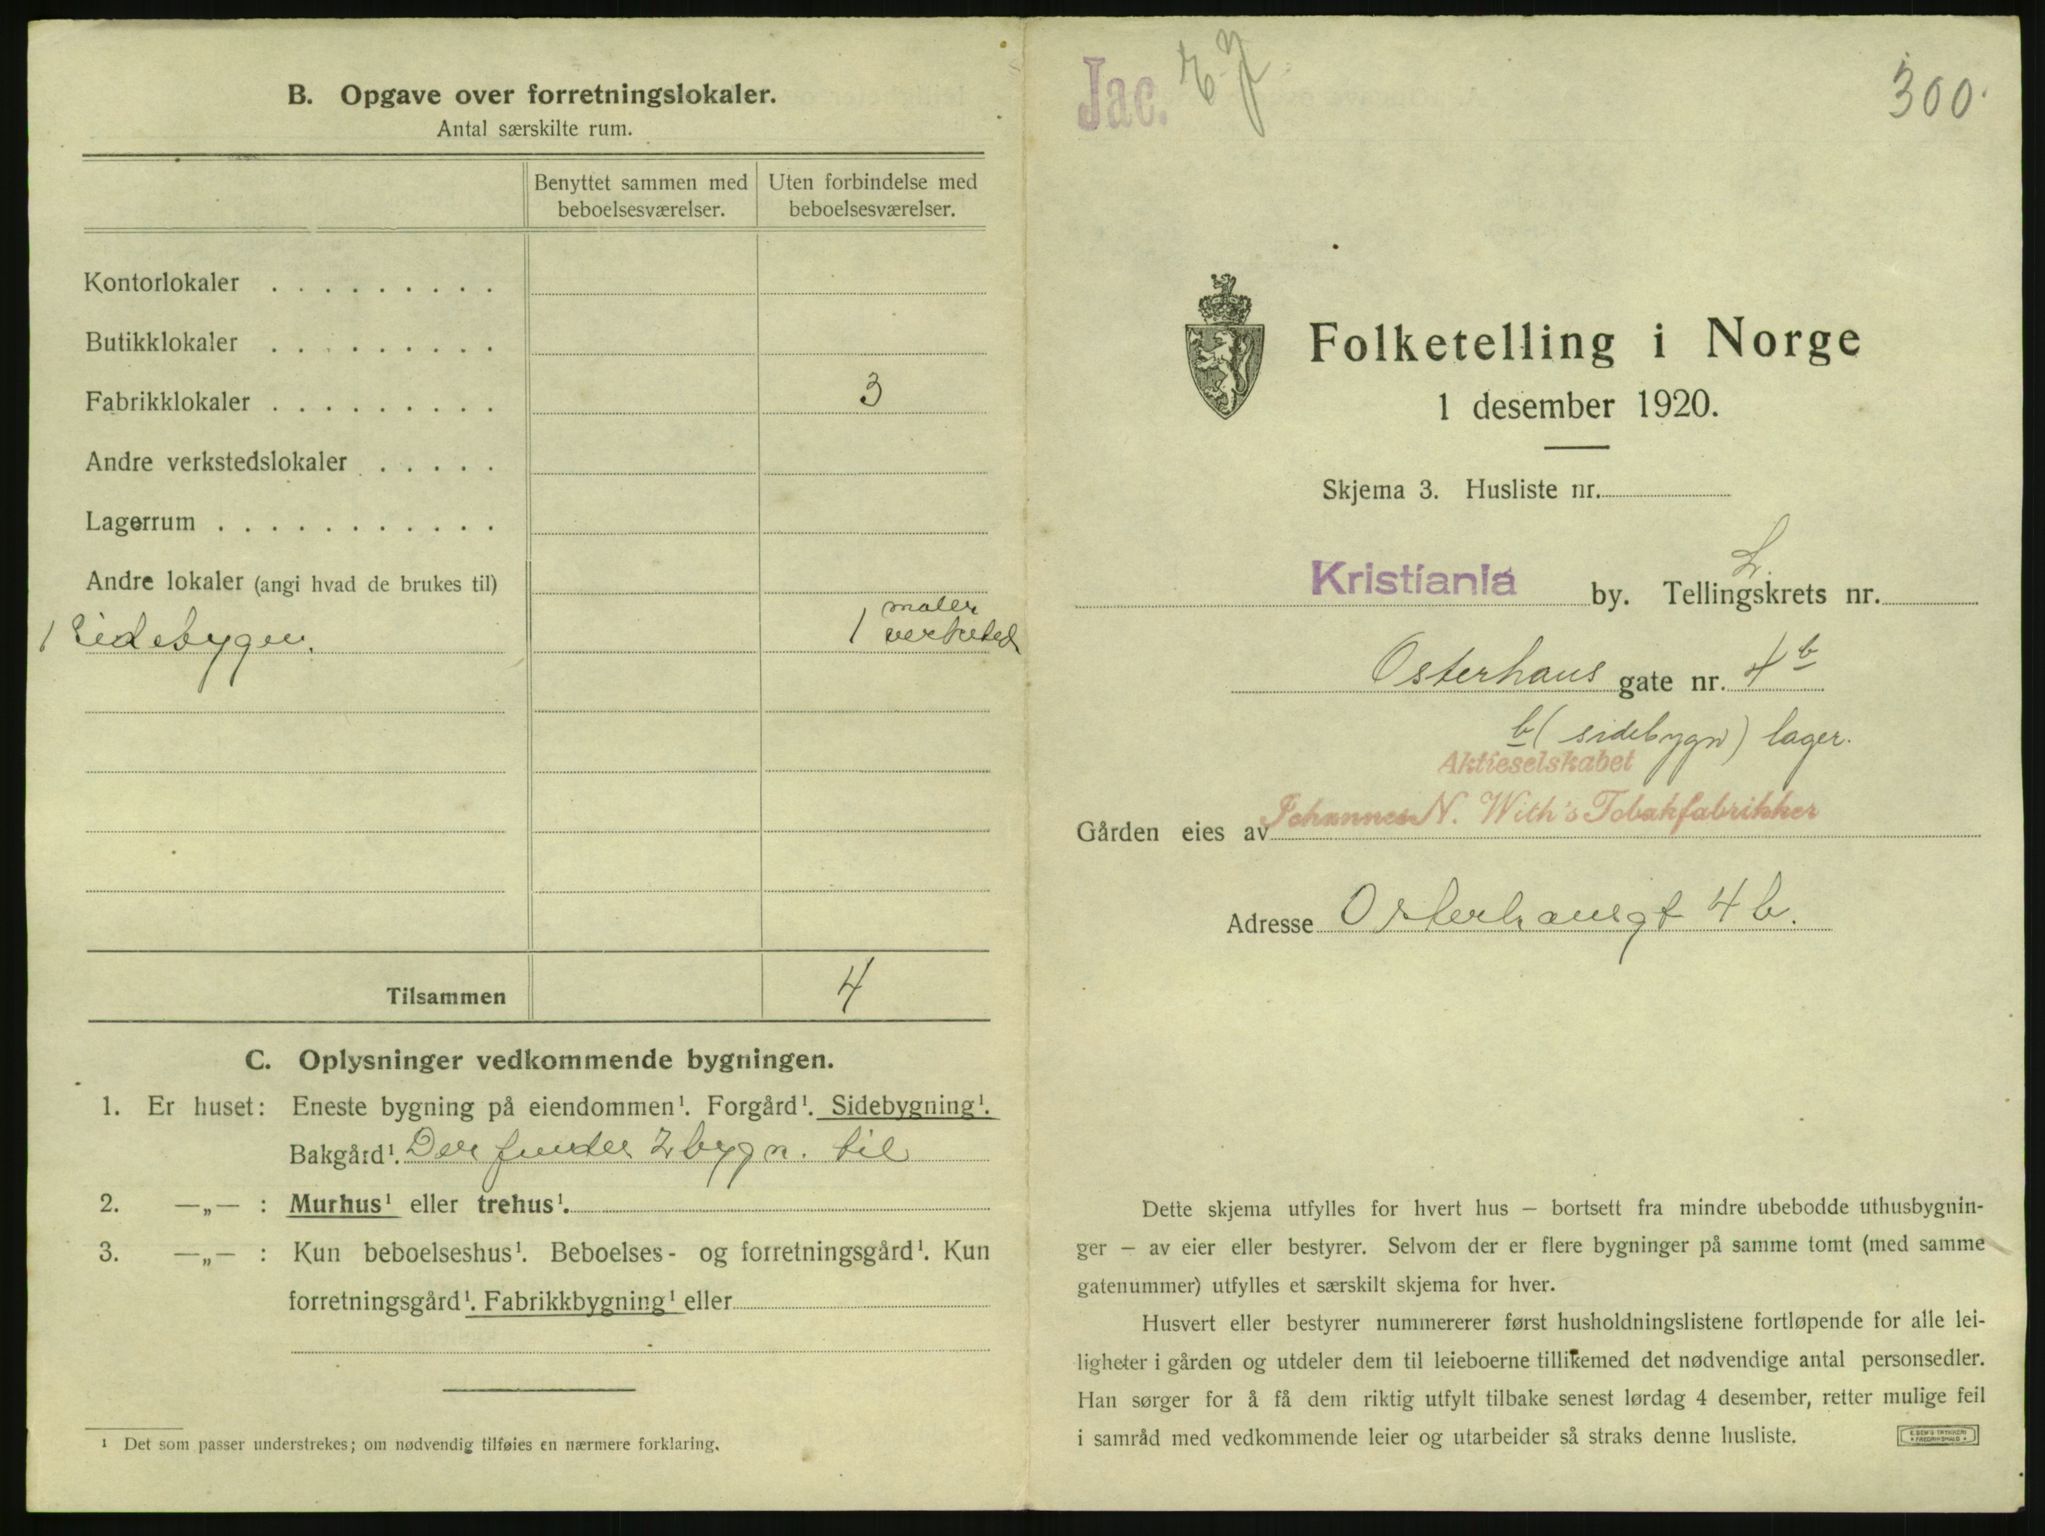 B. Opgave over forretningslokaler.
Antal særskilte rum.
Benyttet sammen med beboelsesværelser.
Uten forbindelse med beboelsesværelser.
Kontorlokaler . . . . . . . . .
Butikklokaler . . . . . . . . .
Fabrikklokaler . . . . . . . . . 3
Andre verkstedslokaler . . . . .
Lagerrum . . . . . . . . . . .
Andre lokaler (angi hvad de brukes til)
1 Sidebygen. 1 maler verksted
Tilsammen 4
C. Oplysninger vedkommende bygningen.
1. Er huset: Eneste bygning på eiendommen¹. Forgård¹. Sidebygning¹.
Bakgård¹. Der findes 2 bygn. til
2. —„— : Murhus¹ eller trehus¹.
3. —„— : Kun beboelseshus¹. Beboelses- og forretningsgård¹. Kun
forretningsgård¹. Fabrikkbygning¹ eller
¹ Det som passer understrekes; om nødvendig tilføies en nærmere forklaring.
Jac.
300.
Folketelling i Norge
1 desember 1920.
Skjema 3. Husliste nr.
Kristiania by. Tellingskrets nr.
Osterhaus gate nr. 4b
b (sidebygn) lager.
Aktieselskabet
Gården eies av Johannes N. With's Tobakfabrikker
Adresse Osterhausgt 4b.
Dette skjema utfylles for hvert hus – bortsett fra mindre ubebodde uthusbygnin-
ger – av eier eller bestyrer. Selvom der er flere bygninger på samme tomt (med samme
gatenummer) utfylles et særskilt skjema for hver.
Husvert eller bestyrer nummererer først husholdningslistene fortløpende for alle lei-
ligheter i gården og utdeler dem til leieboerne tillikemed det nødvendige antal personsedler.
Han sørger for å få dem riktig utfylt tilbake senest lørdag 4 desember, retter mulige feil
i samråd med vedkommende leier og utarbeider så straks denne husliste.